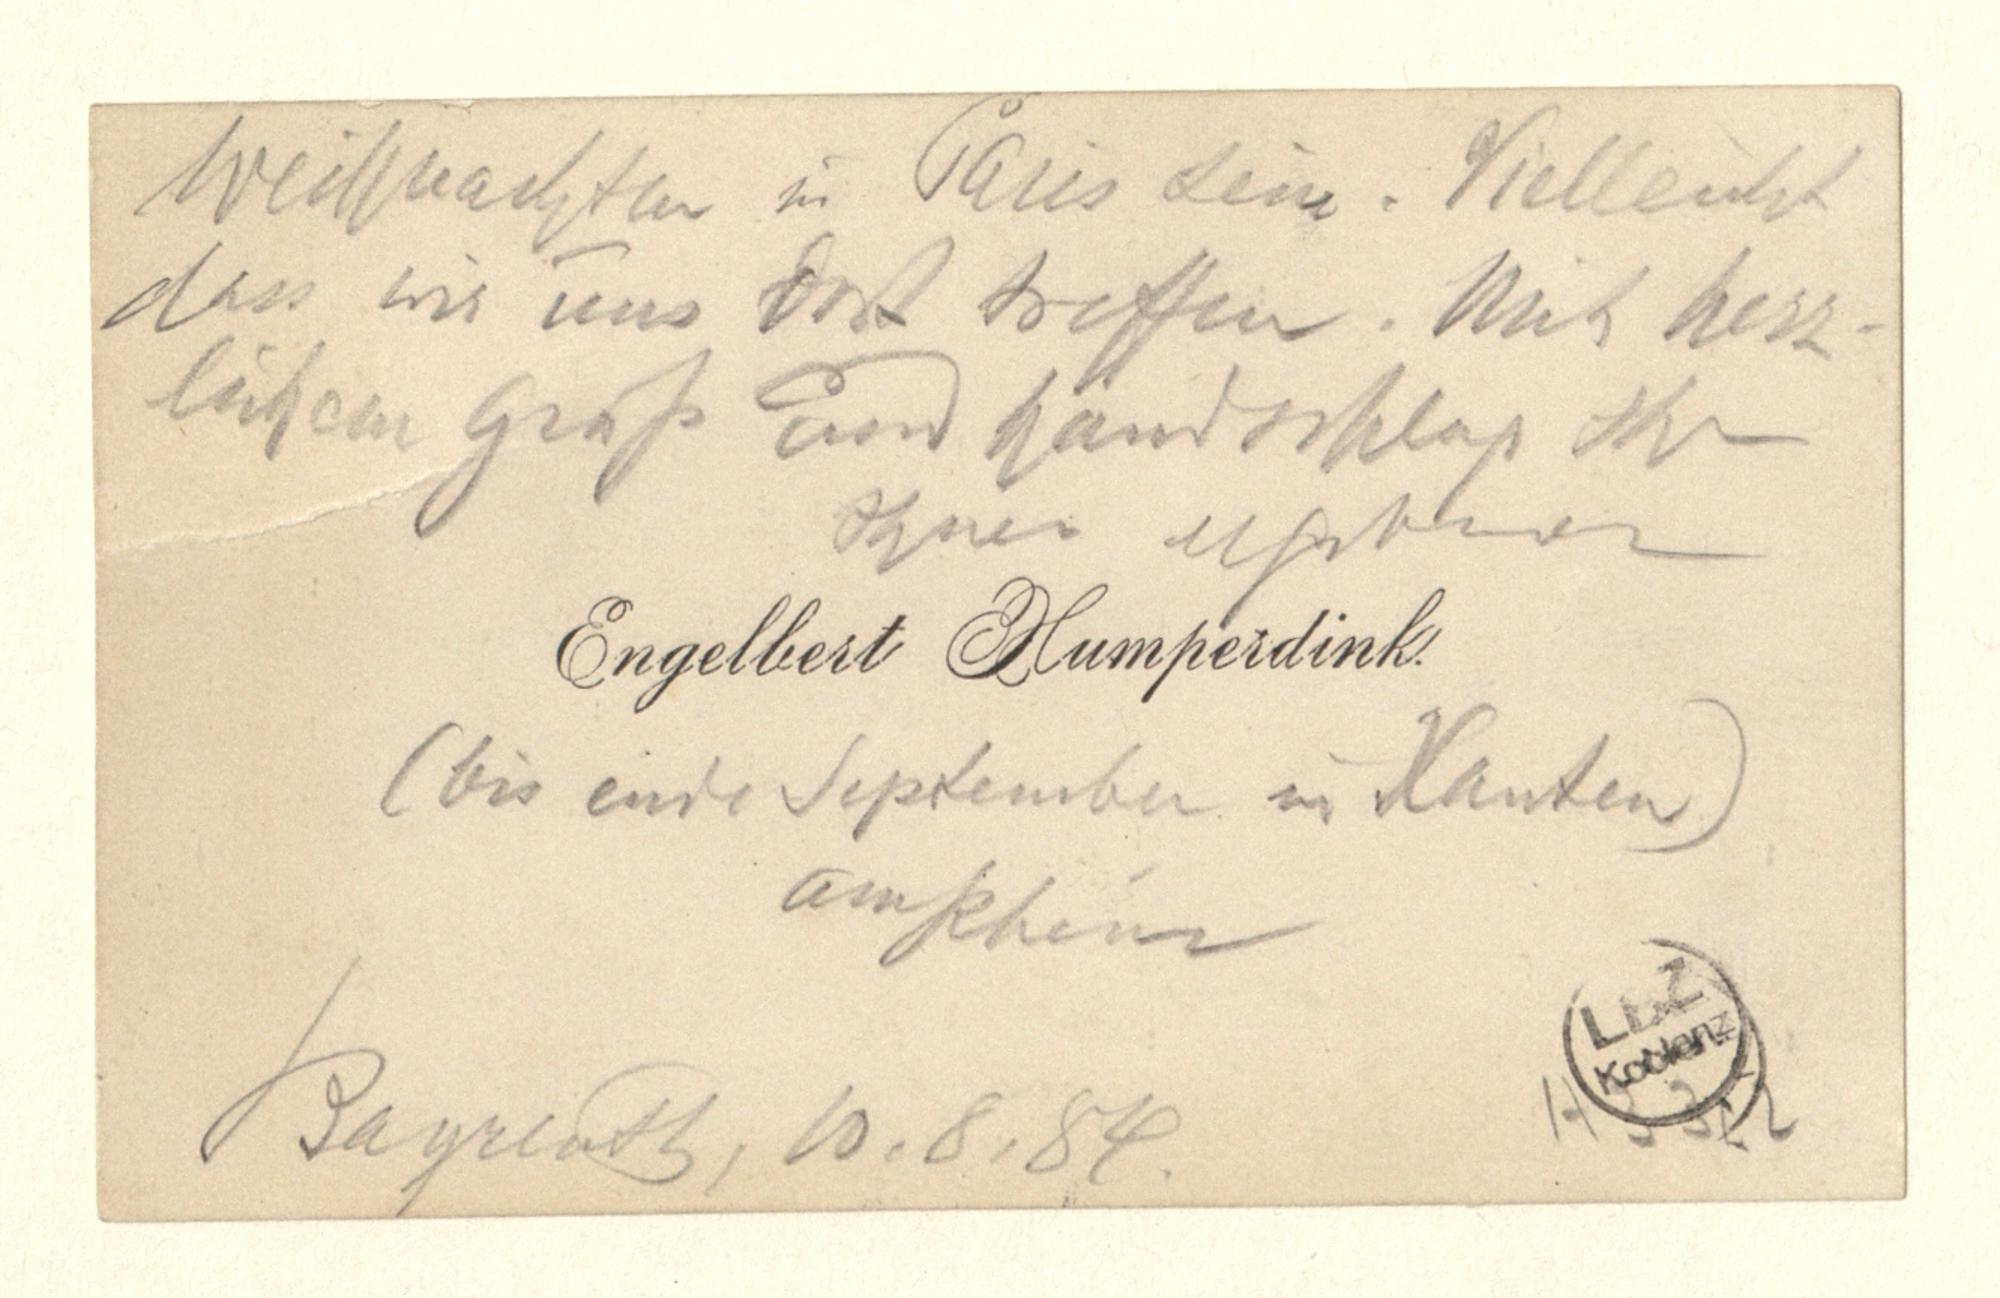 Weihnachten in Paris sein. Vielleicht
dass wir uns dort treffen. Mit herz-
lichem Gruß und Handschlag Ihr
Ihnen ergebener
Engelbert Humperdink.
(bis ende September in Xanten)
am Rhein
Bayreuth, 10.8.84.
LBZ
Koblenz